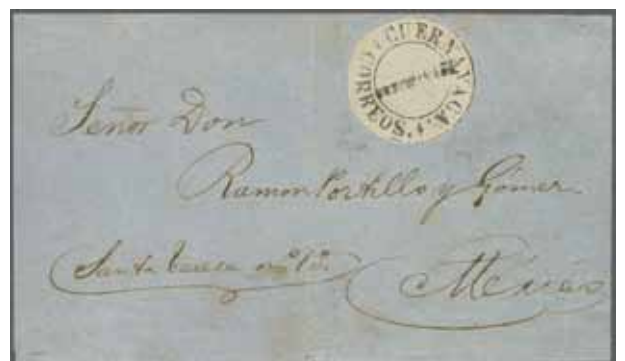 CUERNAVACA.
CORREOS.
Señor Don
Ramon Portillo y Gómez
Santa Teresa nº
México